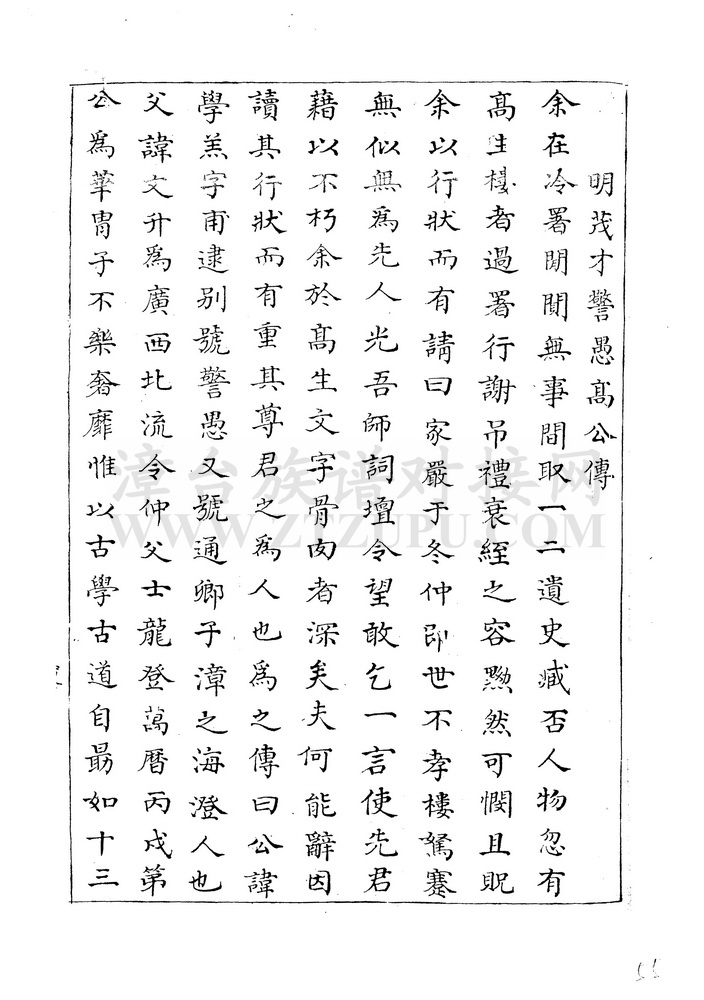 明茂才警愚髙公傳
余在冷署閒閒無事間取一二遺史臧否人物忽有
髙生樓者過署行謝吊禮衰絰之容黝然可憫且貺
余以行狀而有請曰家嚴于冬仲即世不孝樓駑蹇
無似無為先人光吾師詞壇令望敢乞一言使先君
藉以不朽余於髙生文字骨肉者深矣夫何能辭因
讀其行狀而有重其尊君之為人也為之傳曰公諱
學羔字甫逮别號警愚又號通鄉子漳之海澄人也
父諱文升為廣西北流令仲父士龍登萬曆丙戌第
公為華胄子不樂奢靡惟以古學古道自勗如十三
漳台族谱对接网
WWW.ZTZUPU.COM
55